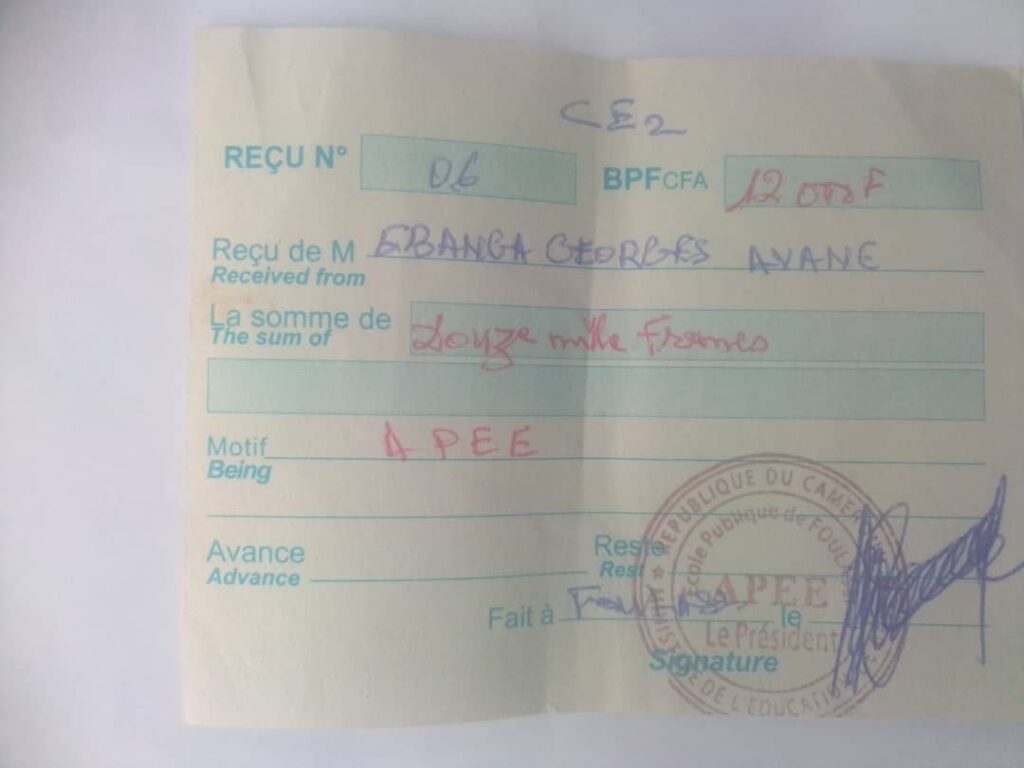 CE2
REÇU N° 06 BPF CFA 12 000 F
Reçu de M EBANGA GEORGES AYANE
Received from
La somme de Douze mille Francs
The sum of
Motif APEE
Being
Avance Reste
Advance Rest
Fait à le
Signature
RÉPUBLIQUE DU CAMER
École Publique de FOUL
APEE
Le Président
DE L'ÉDUCATIO